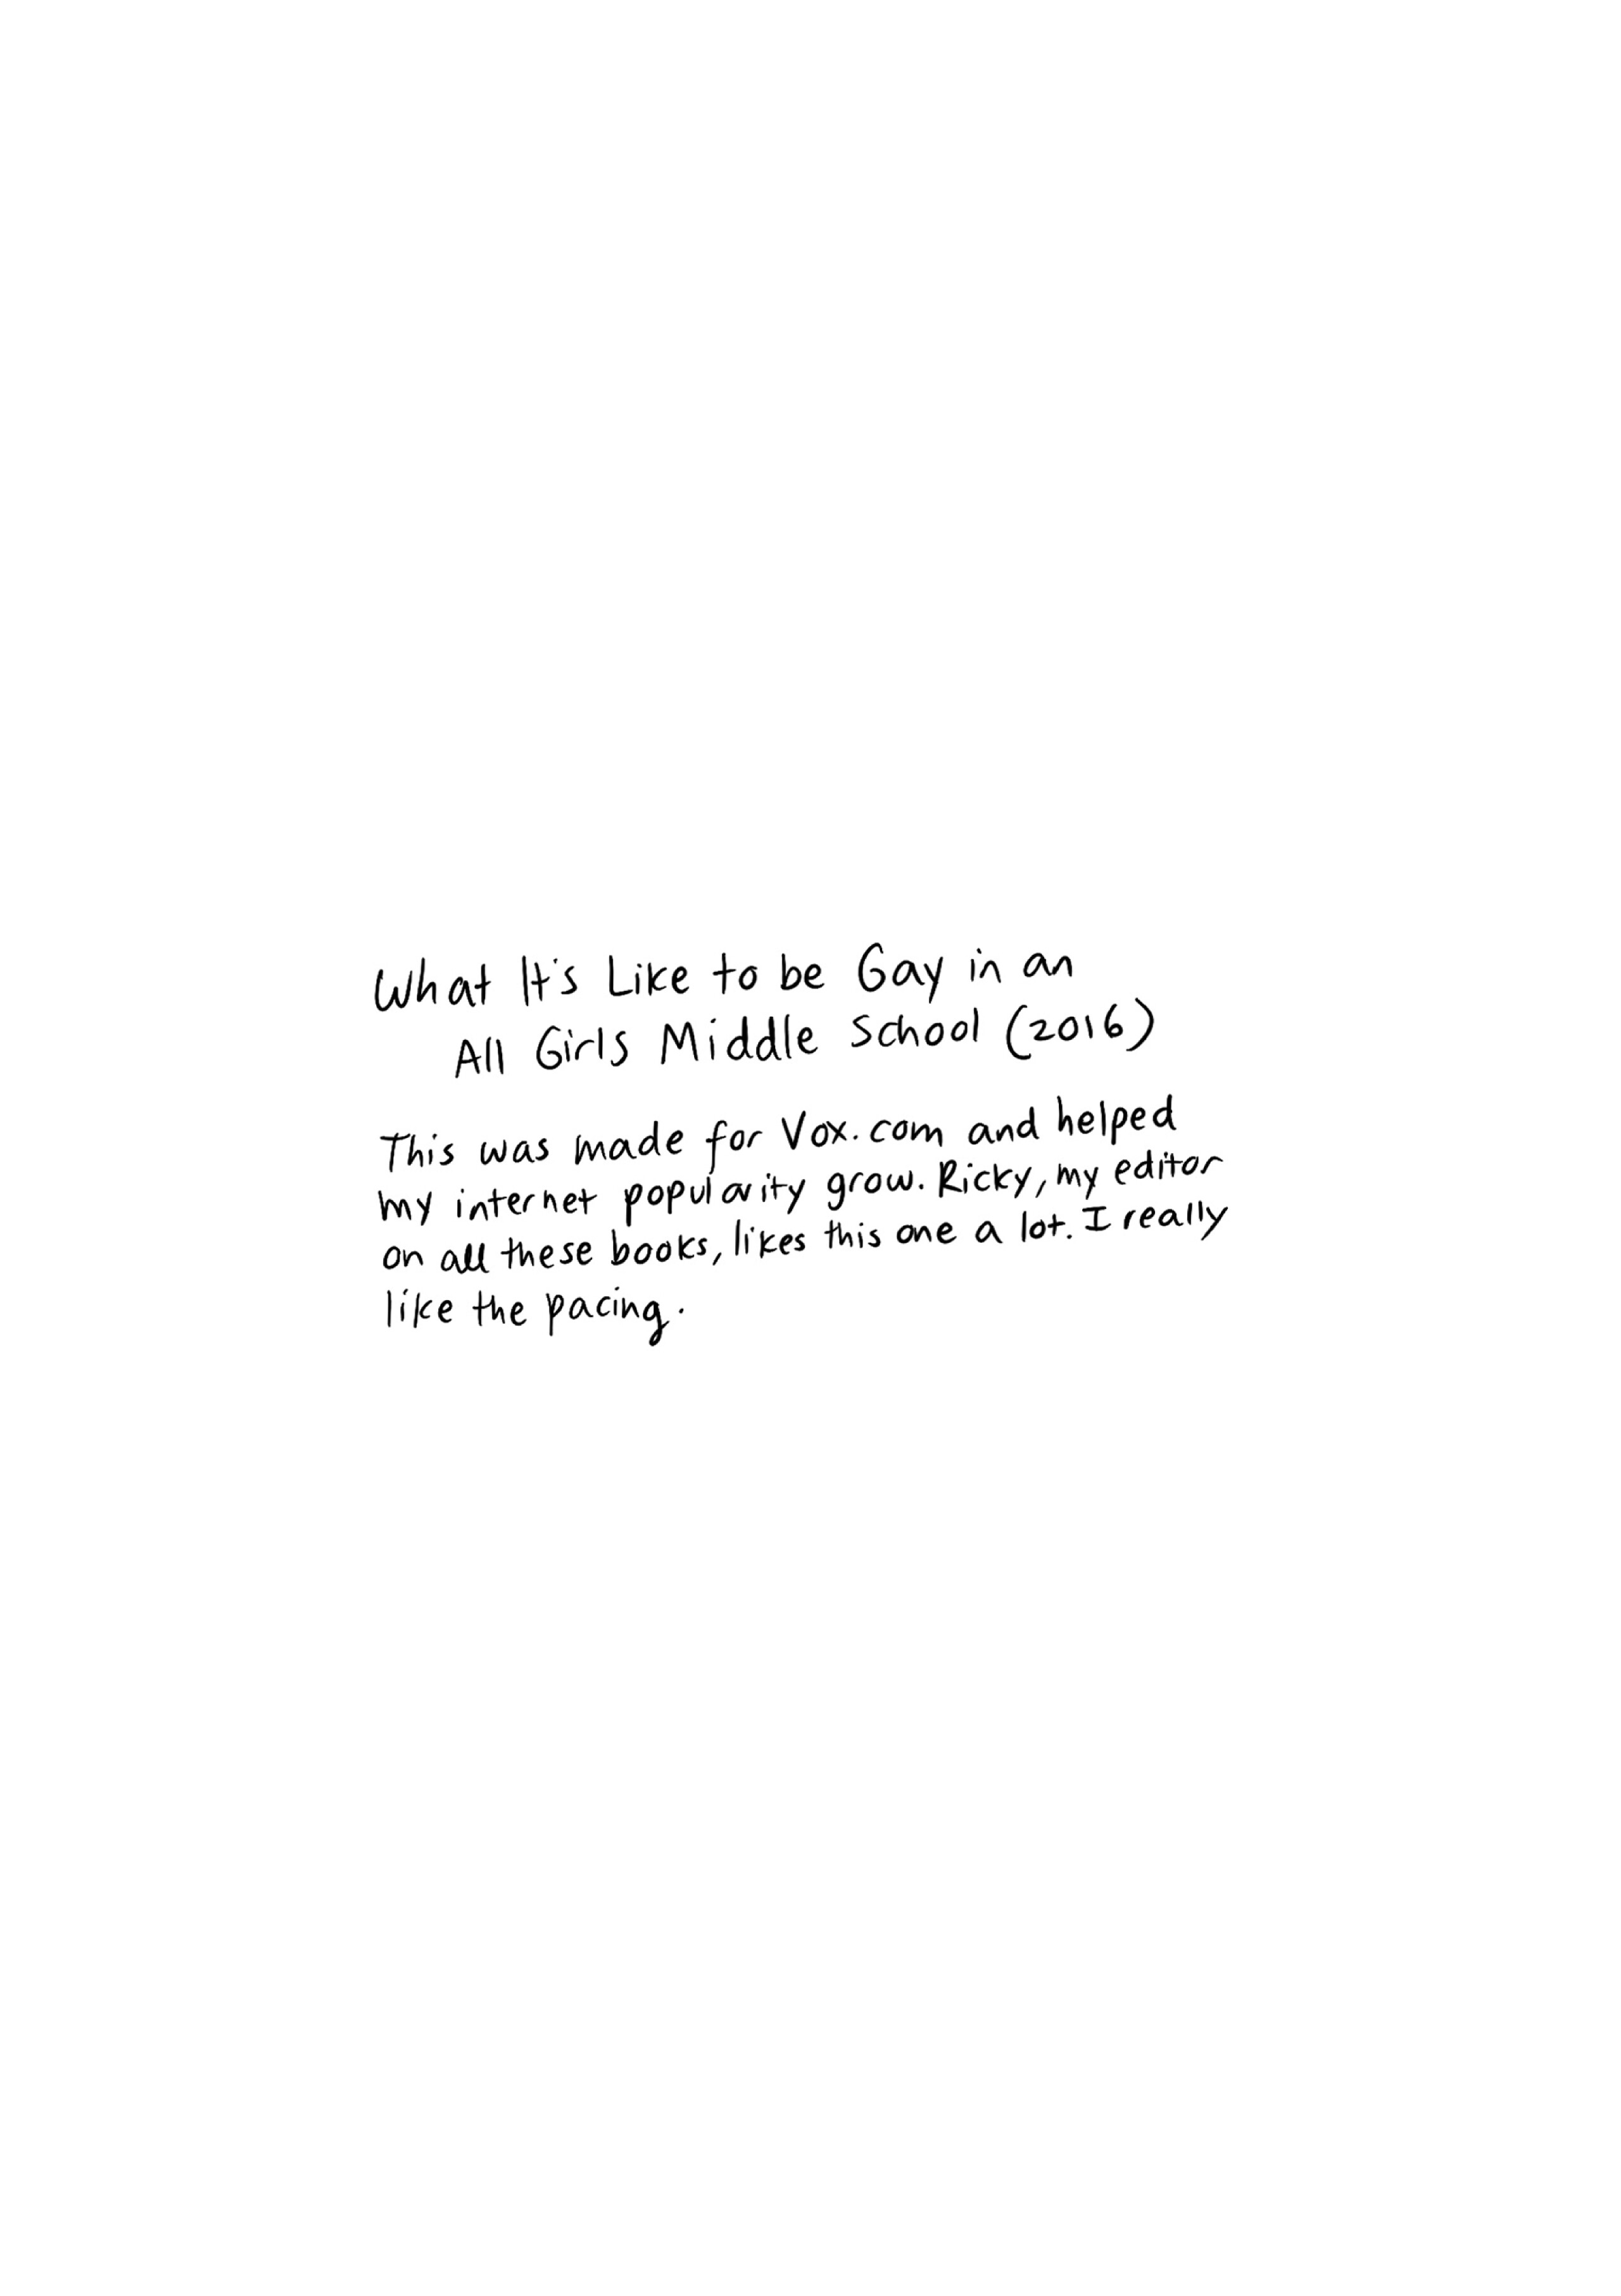 What It's Like to be Gay in an
All Girls Middle School (2016)
This was made for Vox.com and helped
my internet popularity grow. Ricky, my editor
on all these books, likes this one a lot. I really
like the pacing.